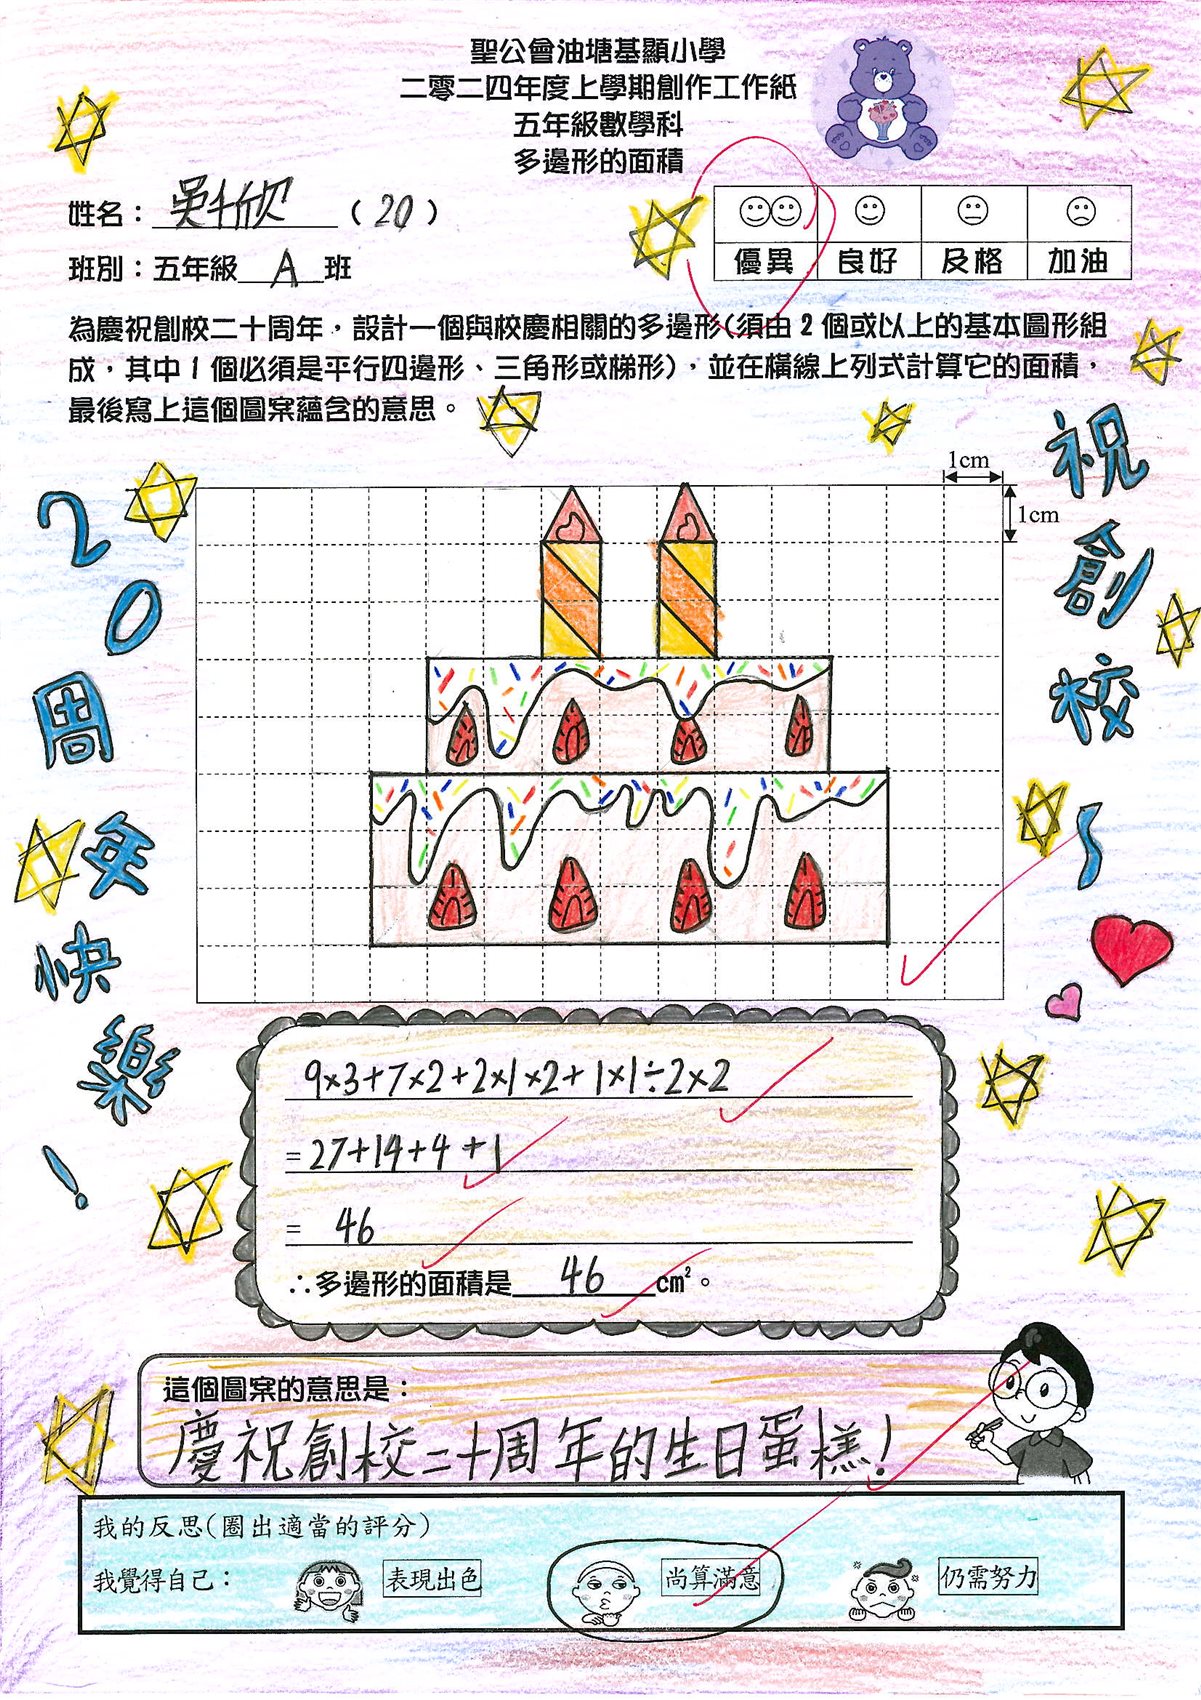 聖公會油塘基顯小學
二零二四年度上學期創作工作紙
五年級數學科
多邊形的面積
姓名：吳千欣（20）
班別：五年級 A 班
優異 良好 及格 加油
為慶祝創校二十周年，設計一個與校慶相關的多邊形(須由 2 個或以上的基本圖形組
成，其中 1 個必須是平行四邊形、三角形或梯形)，並在橫線上列式計算它的面積，
最後寫上這個圖案蘊含的意思。
1cm
1cm
祝創校
20周年快樂！
9×3+7×2+2×1×2+1×1÷2×2
=27+14+4+1
= 46
∴多邊形的面積是 46 cm²。
這個圖案的意思是：
慶祝創校二十周年的生日蛋糕！
我的反思(圈出適當的評分)
我覺得自己： 表現出色 尚算滿意 仍需努力